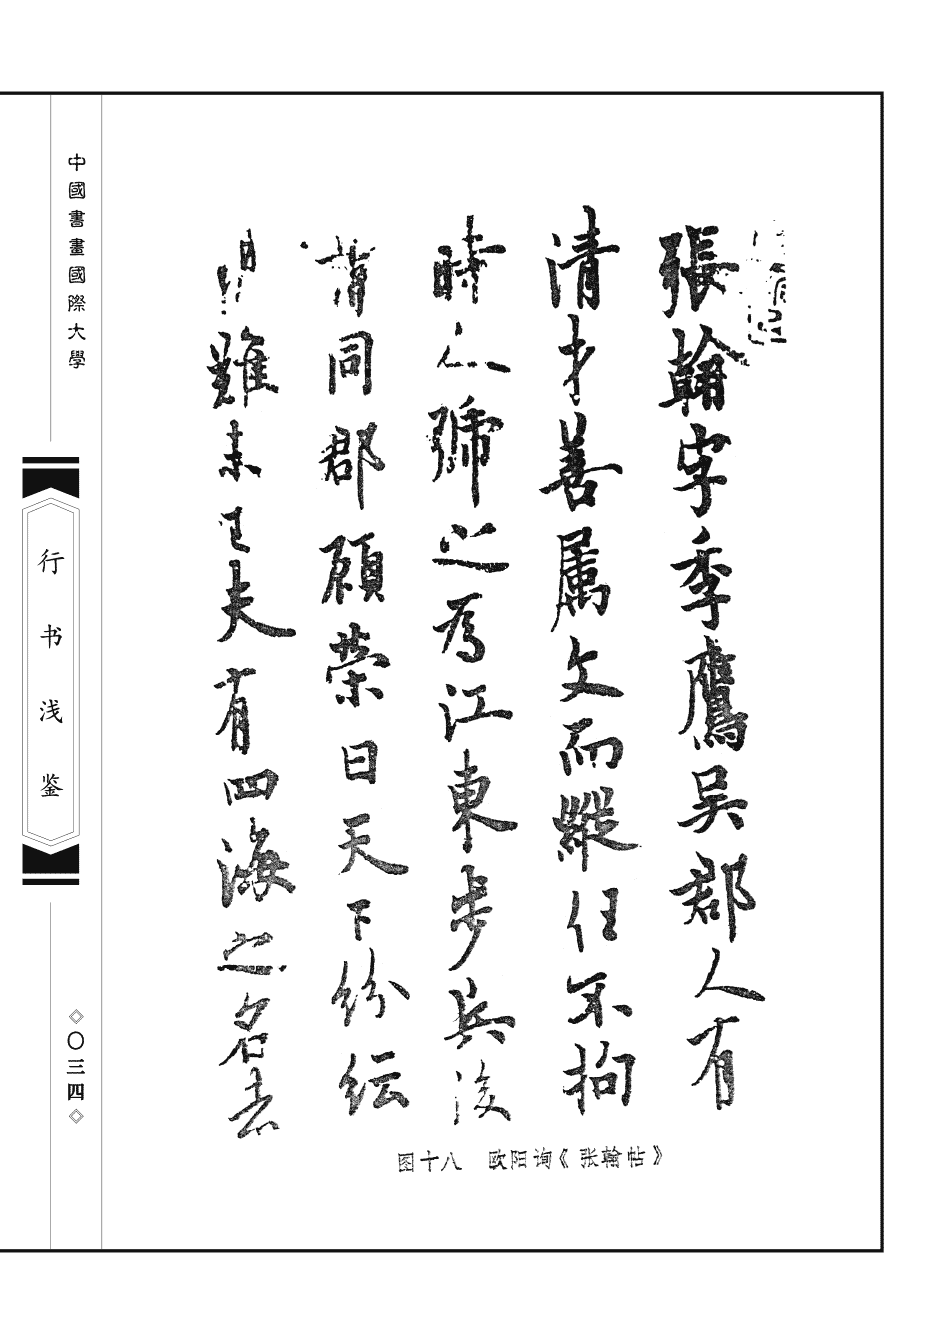 中國書畫國際大學
行书浅鉴
〇三四
張翰字季鷹吴郡人有
清才善属文而縱任不拘
時人號之為江東步兵後
謂同郡顧榮曰天下紛紜
難未已夫有四海之名者
图十八 欧阳询《张翰帖》